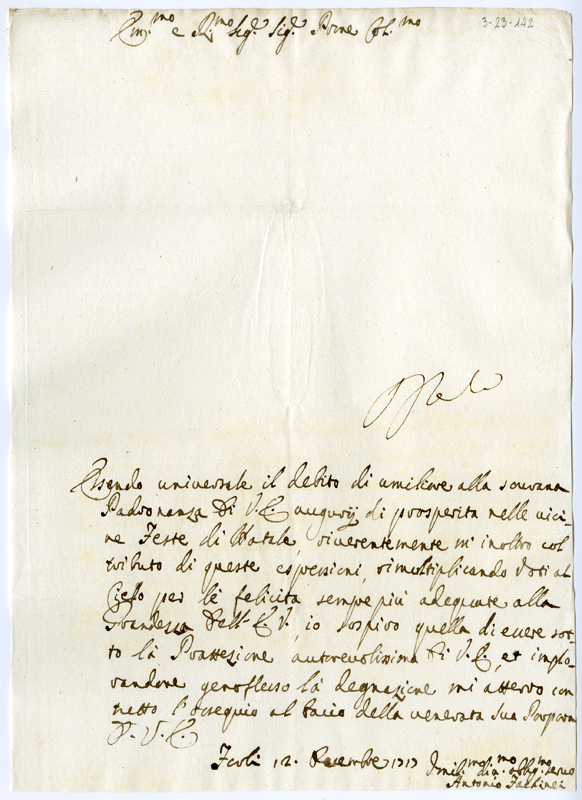 Em.mo e R.mo Sig.r Sig.r Prone Col.mo
3-23-142
Essendo universale il debito di umiliare alla souvana
Padronanza di V.E. augurij di prosperità nelle vici-
ne Feste di Natale, riverentemente m'inoltro col
tributo di queste espressioni, rimoltiplicando voti al
Cielo per le felicità sempre più adequate alla
Grandezza dell'E.V., io sospiro quella di essere sot-
to la Prottezione autorevolissima di V.E., et implo-
randone genoflesso la degnazione mi atterro con
tutto l'ossequio al baccio della venerata Sua Porpora
D. V. E.
12. Decembre 1717
Umil.mo obblig.mo servo
Antonio Fachinei